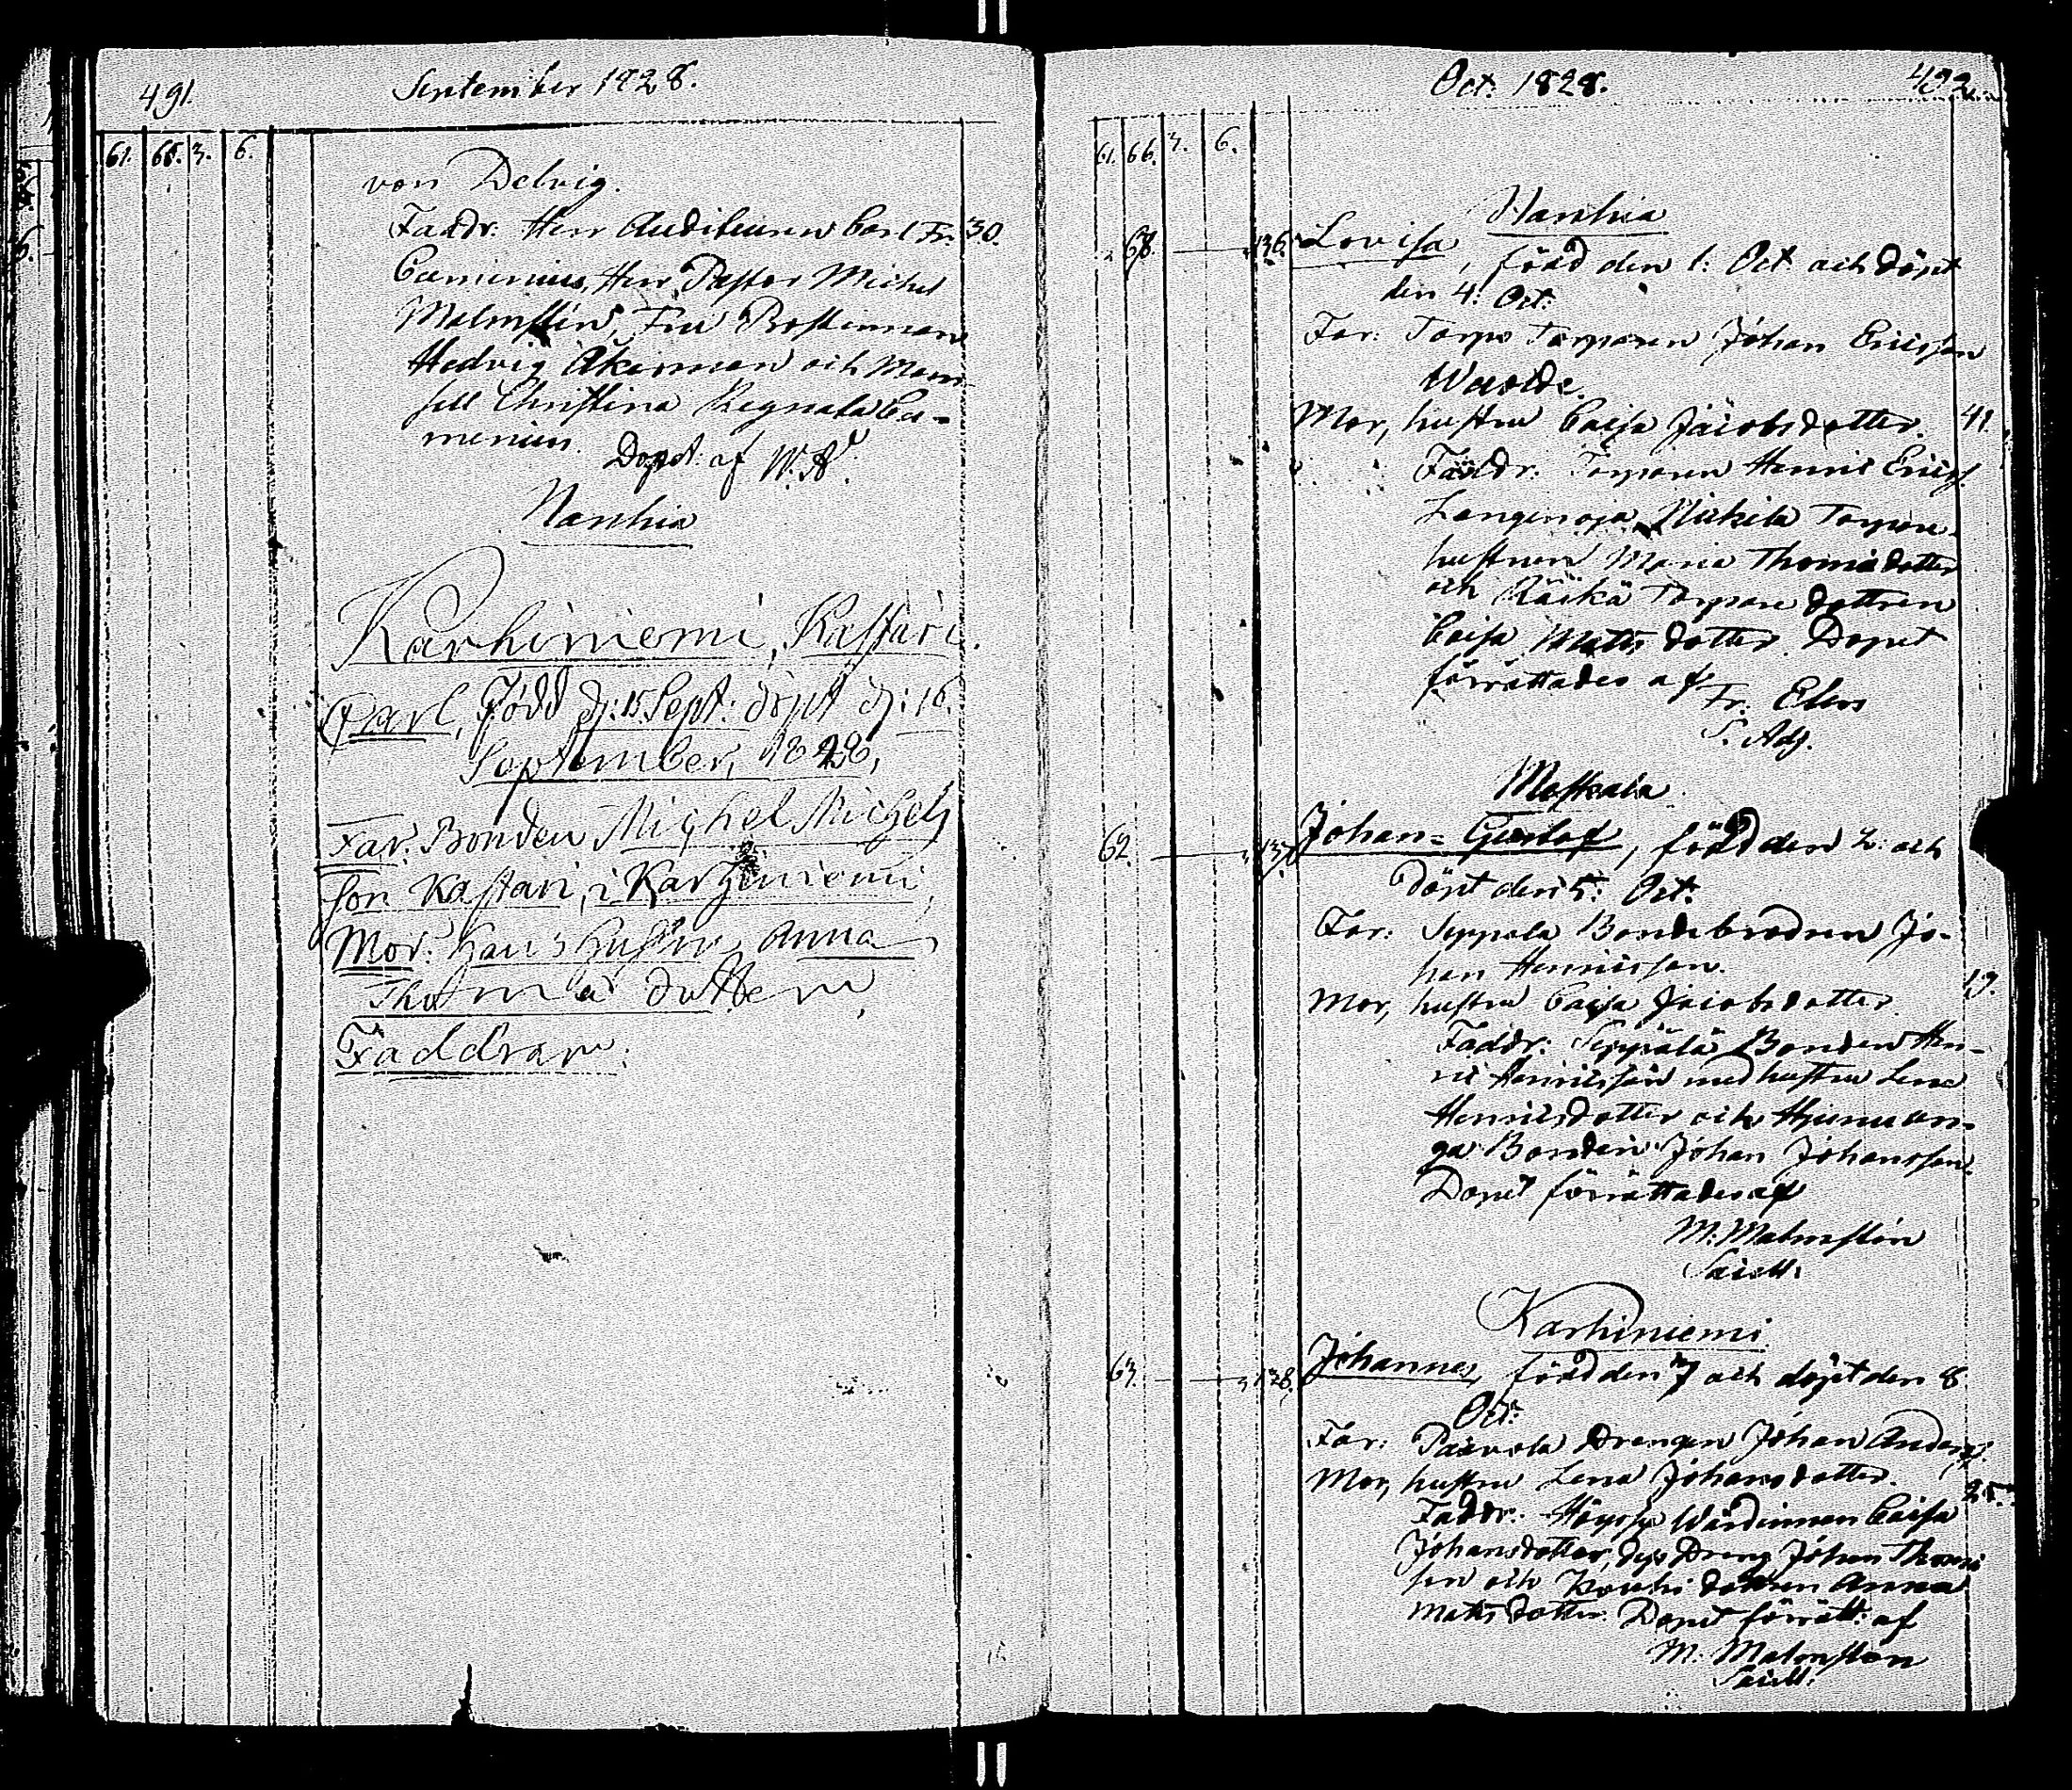 491.
September 1828.
61. 68. 3. 6.
von Delvig.
Faddr. Herr Auditeuren Carl Fr. 30.
Cumenius, Herr Pastor Michel
Malmstén, Fru Prostinnan
Hedvig Åkerman och Mam-
sell Christina Regnala Cu-
menius.
Dopet af W. A.
Nanhia
Karhiniemi, Kastari.
Carl, Född d: 15 Sept: döpt d: 16
September, 1828,
Far: Bonden Michel Michels
son Kastari, i Karhiniemi,
Mor: hans hustru Anna
Thomae dotter,
Faddrar:
Oct: 1828.
492
61. 66. 3. 6.
Nanhia
68. 136. Lovisa, född den 1: Oct. och döpt
den 4: Oct:
Far: Torpo Torparen Johan Ericsson
Mor, hustru Caisa Jacobsdotter. 41.
Faddr: Torparen Henric Erics.
Langenoja, Nickila Torpare
hustrun Maria Thomasdotter
och Räikä Torpare dottren
Caisa Matts dotter. Dopet
förrättades af
Fr. Elers
S. Adj.
62. 137. Johan-Gustaf, född den 2: och
döpt den 5: Oct:
Far: Seppala Bondebrodren Jo-
han Henricsson.
Mor, hustru Caisa Jacobsdotter. 19.
Faddr: Seppälä Bonden Hen-
ric Henricsson med hustru Lena
Henricsdotter och
Bonden Johan Johansson.
Dopet förrättades af
M: Malmstén
Karhiniemi
63. 138. Johannes, född den 7 och döpt den 8
Oct:
Far: Paavola Drengen Johan Anders.
Mor, hustru Lena Johansdotter. 25.
Faddr: Wärdinnan Caisa
Johansdotter, dess Dreng Johan Thomas
son och dottren Anna
Matts dotter. Dopet förrätt: af
M. Malmstén